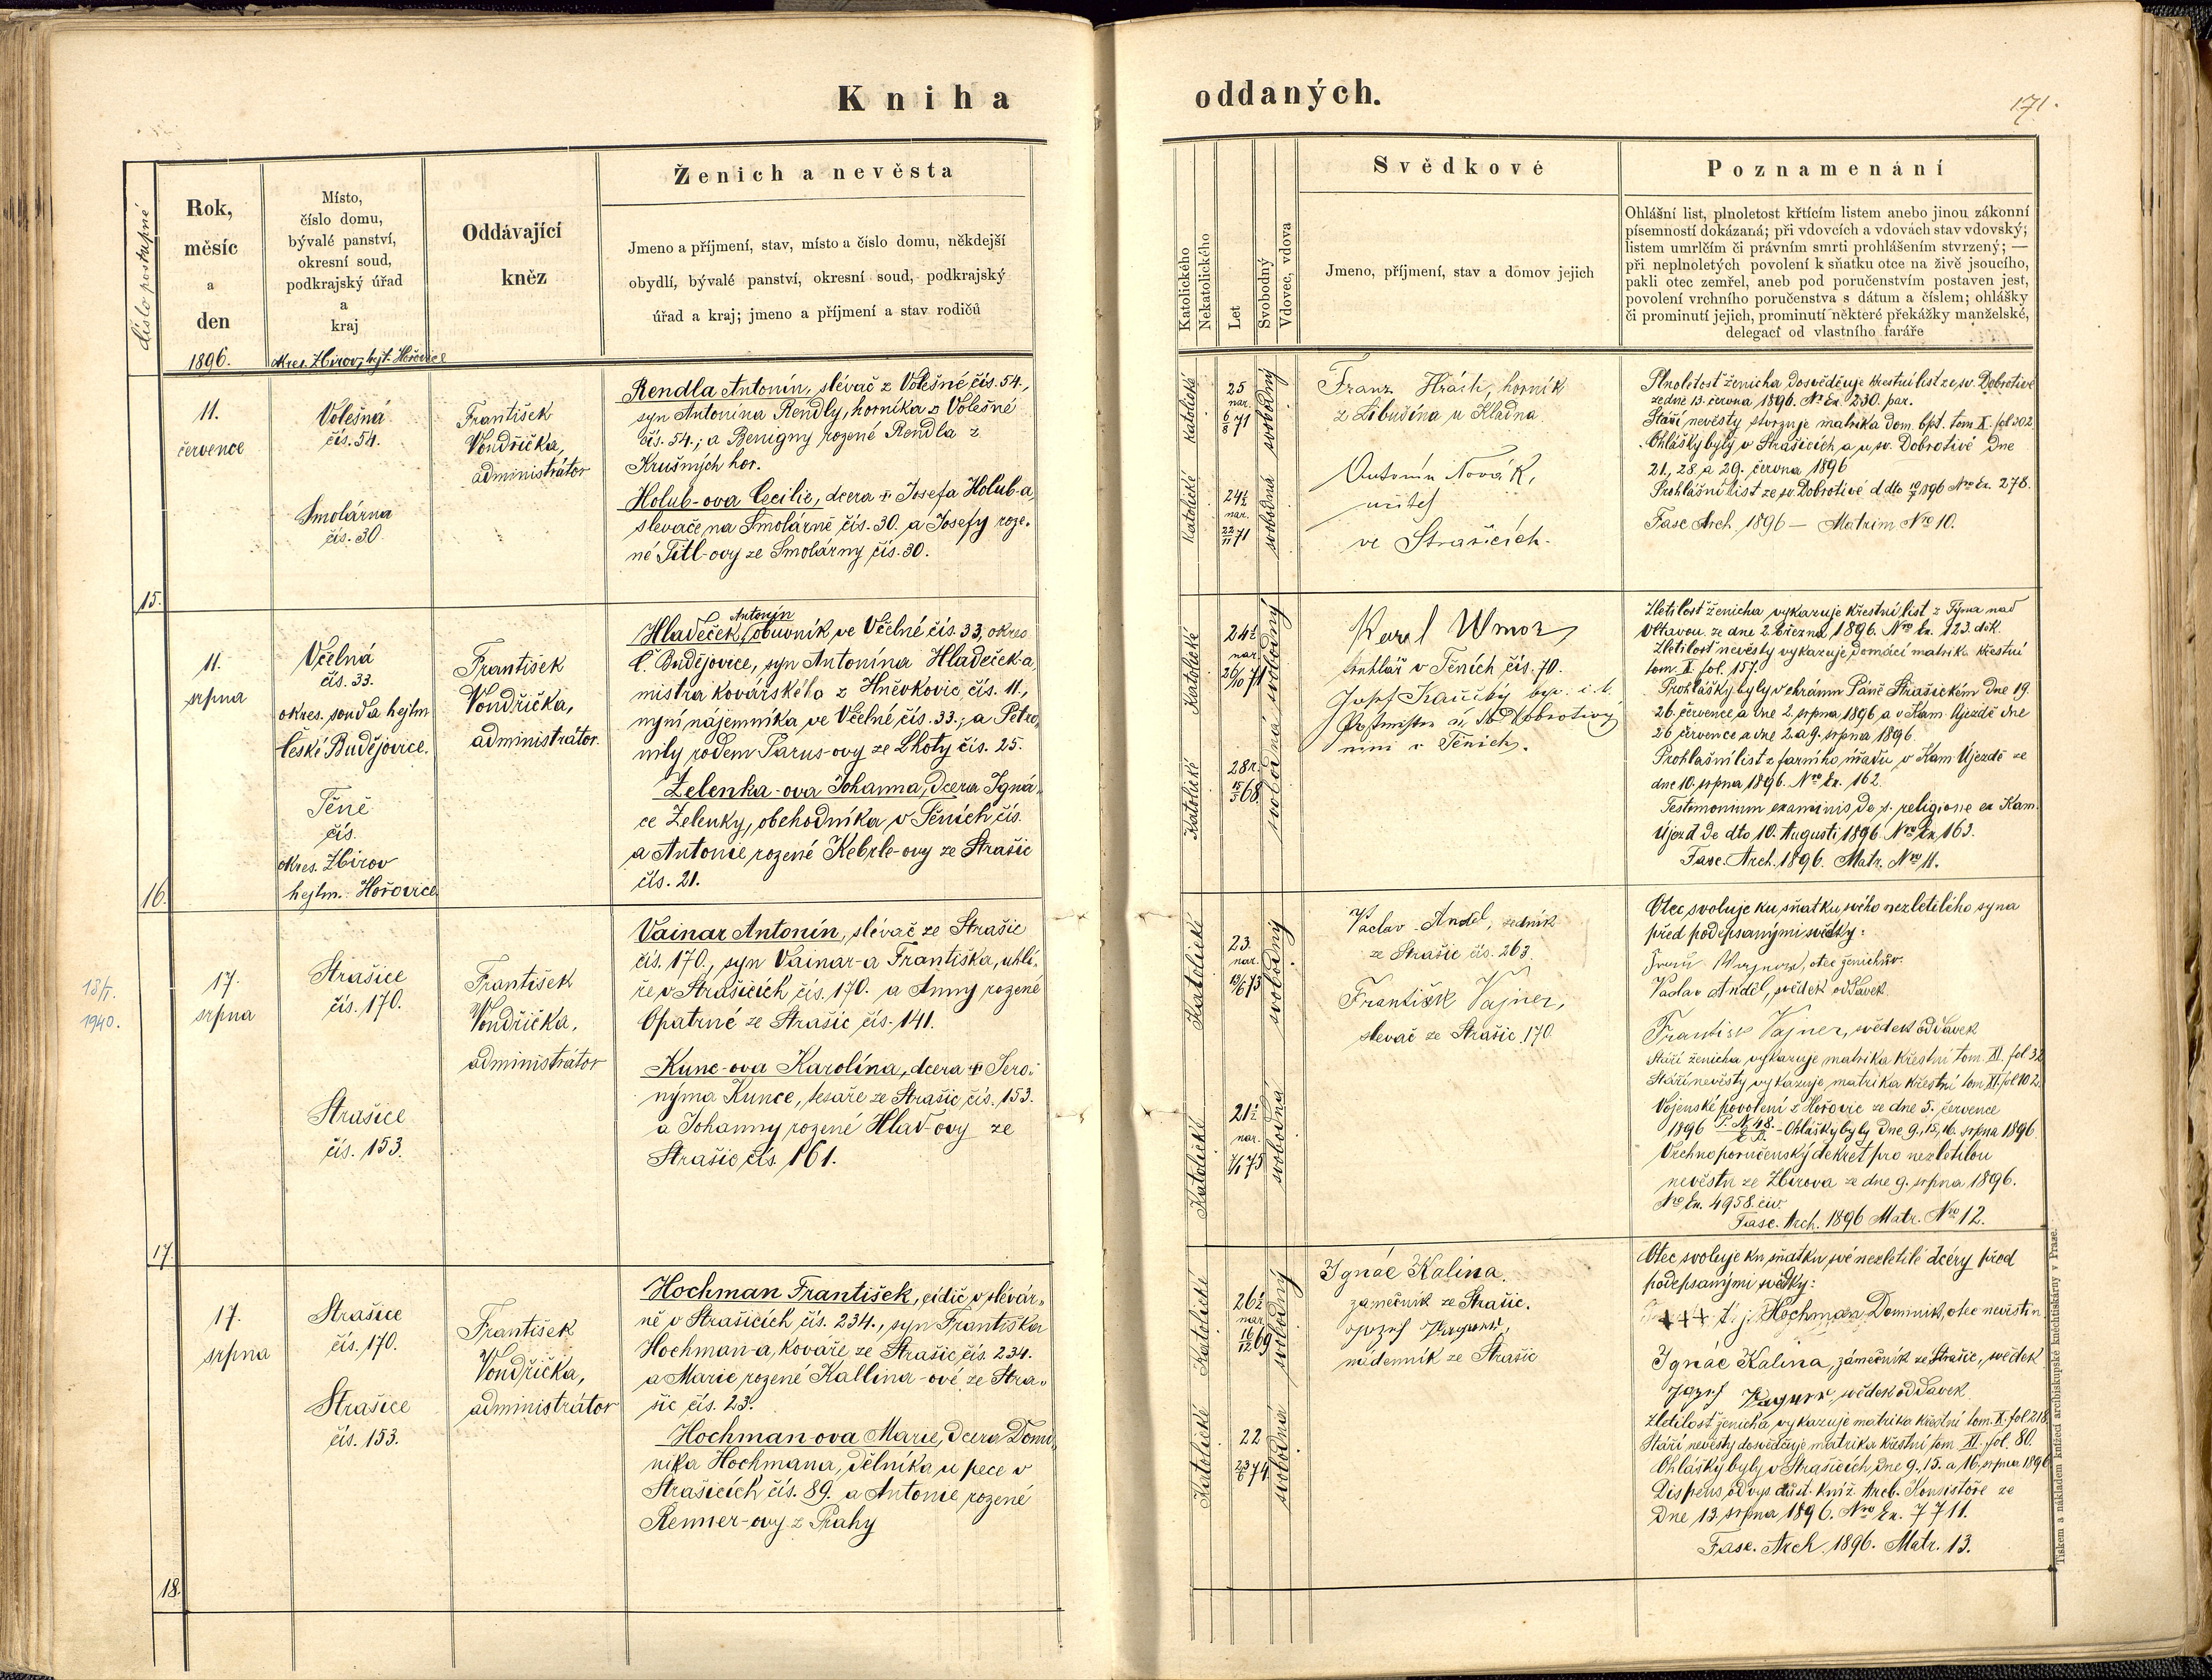 Kniha
oddaných.
171.
číslo postupné
Rok,
měsíc
a
den
1896.
Místo,
číslo domu,
bývalé panství,
okresní soud,
podkrajský úřad
a
kraj
okres. Zbirov, hejt. Hořovice
Oddávající
kněz
Ženich a nevěsta
Jmeno a příjmení, stav, místo a číslo domu, někdejší
obydlí, bývalé panství, okresní soud, podkrajský
úřad a kraj; jmeno a příjmení a stav rodičů
Katolického
Nekatolického
Let
Svobodný
Vdovec, vdova
Svědkové
Jmeno, příjmení, stav a domov jejich
Poznamenání
Ohlášní list, plnoletost křtícím listem anebo jinou zákonní
písemností dokázaná; při vdovcích a vdovách stav vdovský;
listem umrlčím či právním smrti prohlášením stvrzený; —
při neplnoletých povolení k sňatku otce na živě jsoucího,
pakli otec zemřel, aneb pod poručenstvím postaven jest,
povolení vrchního poručenstva s dátum a číslem; ohlášky
či prominutí jejich, prominutí některé překážky manželské,
delegací od vlastního faráře
15.
11.
července
Volešná
čís. 54.
Smolárna
čís. 30
František
Vondřička,
administrátor
Rendla Antonín, slévač z Volešné čís. 54.,
syn Antonína Rendly, horníka z Volešné
čís. 54.; a Benigny rozené Rendla z
Krušných hor.
Holub-ova Cecilie, dcera † Josefa Holub-a,
slevače na Smolárně čís. 30. a Josefy roze-
né Titl-ovy ze Smolárny čís. 30.
Katolické
25
nar.
6/8 71
svobodný
Katolické
24½
nar.
22/11 71
svobodná
Franz Hrách, horník
z Libušína u Kladna
Antonín Novák,
učitel
ve Strašicích.
Plnoletost ženicha dosvědčuje křestní list ze sv. Dobrotivé
ze dne 13. června 1896. No Ex. 230. par.
Stáří nevěsty stvrzuje matrika dom. bpt. tom X. fol 302.
Ohlášky byly v Strašicích a u sv. Dobrotivé dne
21., 28. a 29. června 1896
Prohlášní list ze sv. Dobrotivé d dto 10/7 1896 Nro Ex. 278.
Fasc Arch. 1896 — Matrim Nro 10.
16.
11.
srpna
Včelná
čís. 33.
okres. soud a hejtm
České Budějovice.
Těně
čís.
okres. Zbirov
hejtm. Hořovice
František
Vondřička,
administrátor
Antonín
Hladeček, obuvník ve Včelné čís. 33, okres
Č. Budějovice, syn Antonína Hladeček-a,
mistra kovářského z Hněvkovic čís. 11.,
nyní nájemníka ve Včelné čís. 33.; a Petro-
nily rodem Parus-ovy ze Lhoty čís. 25.
Zelenka-ova Johanna, dcera Igná-
ce Zelenky, obchodníka v Těních čís.
a Antonie rozené Kebrle-ovy ze Strašic
čís. 21.
Katolické
24½
nar.
26/10 71
svobodný
Katolické
28 r.
15/5 68.
svobodná
Karel
truhlář v Těních čís. 70.
Zletilost ženicha vykazuje křestní list z Týna nad
Vltavou ze dne 2. března 1896. Nro Ex. 123. děk.
Zletilost nevěsty vykazuje domácí matrika křestní
tom. X. fol. 157.
Prohlášky byly v chrámu Páně Strašickém dne 19.
26. července a dne 2. srpna 1896 a v Kam. Újezdě dne
26 července a dne 2. a 9. srpna 1896.
Prohlašní list z farního úřadu v Kam. Újezdě ze
dne 10. srpna 1896. Nro Ex. 162.
Testimonium examinis de s. religione ex Kam.
Újezd de dto 10. Augusti 1896. Nro Ex. 163.
Fasc. Arch. 1896. Matr. Nro 11.
17.
1940.
17.
srpna
Strašice
čís. 170.
Strašice
čís. 153.
František
Vondřička,
administrátor
Vainar Antonín, slévač ze Strašic
čís. 170., syn Vainar-a Františka, uhlí-
ře v Strašicích čís. 170. a Anny rozené
Opatrné ze Strašic čís. 141.
Kunc-ova Karolína, dcera † Jero-
nýma Kunce, tesaře ze Strašic čís. 153.
a Johanny rozené Hlad-ovy ze
Strašic čís. 161.
Katolické
23.
nar.
13/6 73
svobodný
Katolické
21½
nar.
7/1 75
svobodná
Václav Anděl, zedník
ze Strašic čís. 263.
František Vajner,
slevač ze Strašic 170.
Otec svoluje ku sňatku svého nezletilého syna
před podepsanými svědky:
otec ženichův.
Vaclav Anděl, svědek oddavek.
František Vajner, svědek oddavek
Stáří ženicha vykazuje matrika křestní tom. XI. fol 32
Stáří nevěsty vykazuje matrika křestní tom XI. fol 102.
Vojenské povolení z Hořovic ze dne 5. července
1896 P. N. 48. – Ohlášky byly dne 9., 15., 16. srpna 1896.
Vrchnoporučenský dekret pro nezletilou
nevěstu ze Zbirova ze dne 9. srpna 1896.
Nro Ex. 4958. civ.
Fasc. Arch. 1896 Matr. Nro 12.
18.
17.
srpna
Strašice
čís. 170.
Strašice
čís. 153.
František
Vondřička,
administrátor
Hochman František, cídič v slévár-
ně v Strašicích čís. 234., syn Františka
Hochman-a, kováře ze Strašic čís. 234.
a Marie rozené Kallina-ové ze Stra-
šic čís. 23.
Hochman-ova Marie, dcera Domi-
nika Hochmana, dělníka u pece v
Strašicích čís. 89. a Antonie rozené
Renner-ovy z Prahy
Katolické
26½
nar.
16/12 69
svobodný
Katolické
22
23/6 74.
svobodná
Ignác Kalina.
zámečník ze Strašic.
Jozef
nádenník ze Strašic
Otec svoluje ku sňatku své nezletilé dcéry před
podepsanými svědky:
+++ t. j. Hochman Dominik, otec nevěstin
Ignác Kalina, zámečník ze Strašic, svědek
Jozef svědek oddavek.
Zletilost ženicha vykazuje matrika křestní tom. X. fol 218.
Stáří nevěsty dosvědčuje matrika křestní tom XI. fol. 80.
Ohlášky byly v Strašicích dne 9., 15. a 16. srpna 1896
Dispens od vys. důst. kníž. Arcb. Konsistoře ze
dne 13. srpna 1896. Nro Ex. 7711.
Fasc. Arch. 1896. Matr. 13.
Tiskem a nákladem knížecí arcibiskupské knihtiskárny v Praze.